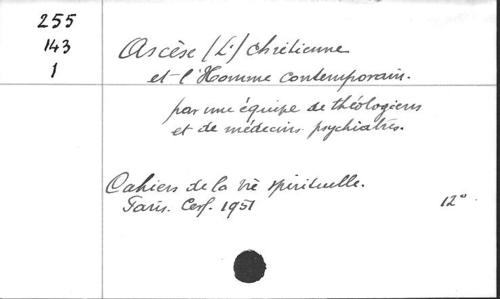 255
143
1
Ascèse (L') chrétienne
et l'Homme contemporain.
par une équipe de théologiens
et de médecins psychiatres.
Cahiers de la vie spirituelle.
Paris. Cerf. 1951
12°